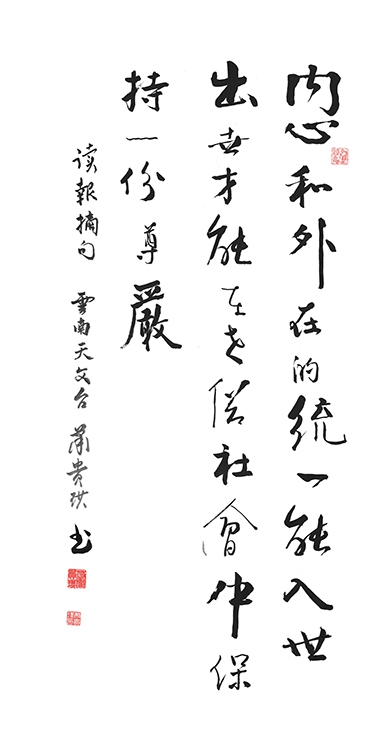 内心和外在的统一能入世
出世才能在世俗社會中保
持一份尊嚴
读報摘句 雲南天文台 书